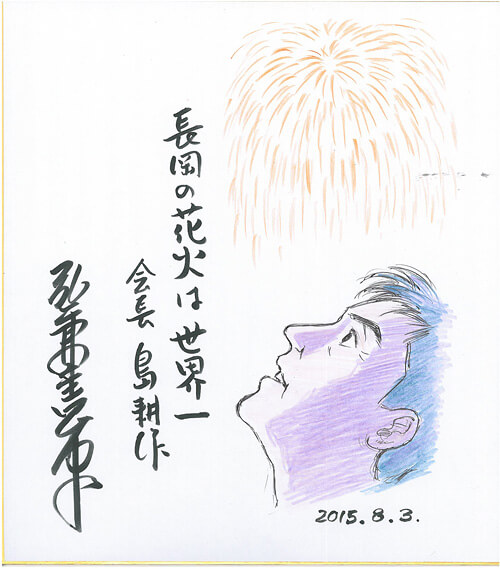 長岡の花火は世界一
会長 島耕作
弘兼憲史
2015.8.3.